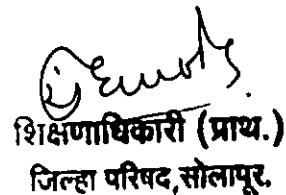 शिक्षणाधिकारी (प्राथ.)
जिल्हा परिषद,सोलापूर.